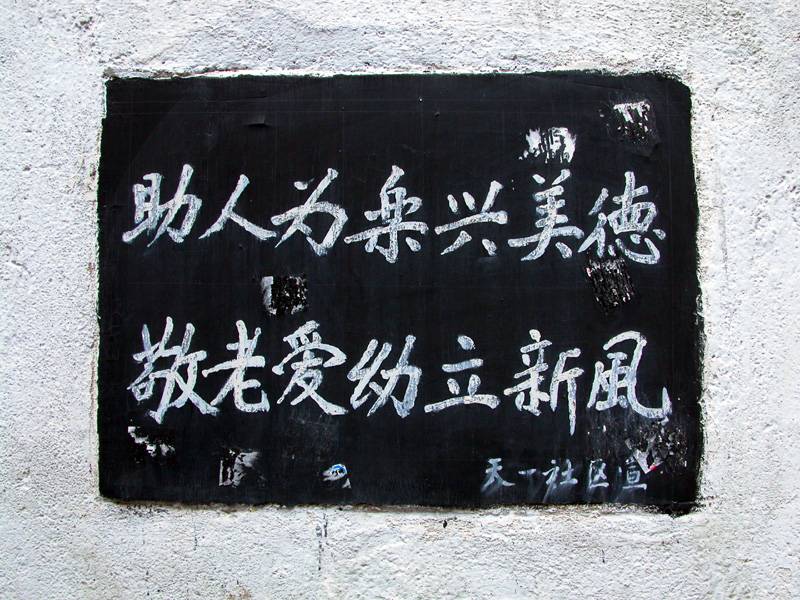 助人为乐兴美德
敬老爱幼立新风
天一社区宣